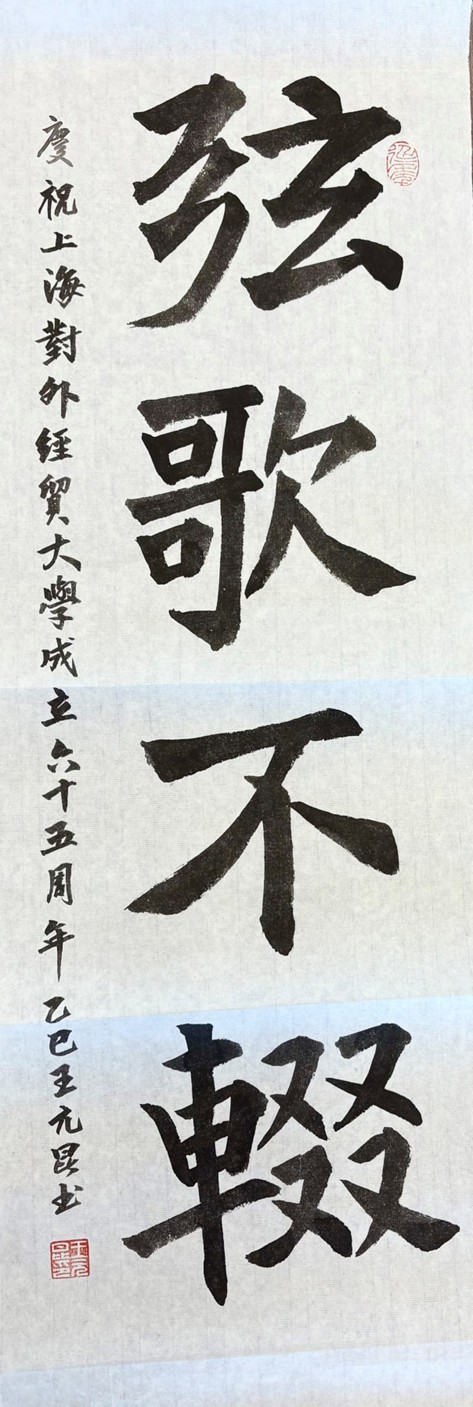 弦歌不輟
慶祝上海對外經貿大學成立六十五周年 乙巳王元昆书